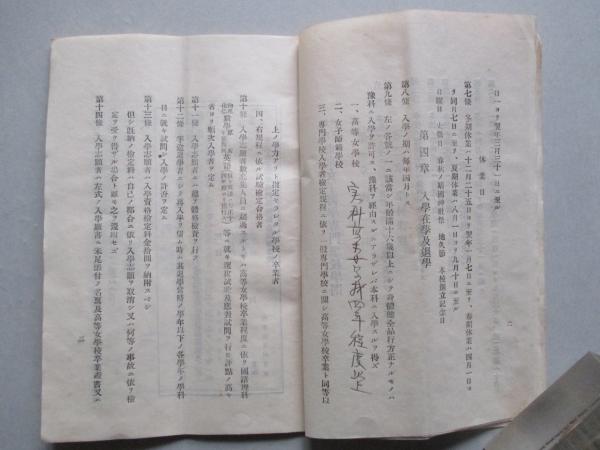 日ニヨリ翌年三月三十一日ニ至ル
休業日
第七條 冬期休業ハ十二月二十五日ヨリ翌年一月七日ニ至リ、春期休業ハ四月一日ヨ
リ同月七日ニ至リ、夏期休業ハ八月一日ヨリ九月十日ニ至ル
日曜日 大祭日 春秋ノ靖國神社祭 地久節 本校創立記念日
第四章 入學在學及退學
第八條 入學ノ期ハ毎年四月トス
第九條 左ノ各號ノ一ニ該當シ年齡滿十六歲以上ニシテ身體健全品行方正ナルモノハ
豫科ニ入學ヲ許可ス、豫科ヲ經由スルニアラザレバ本科ニ入學スルヲ得ズ
一、高等女學校
二、女子師範學校
三、專門學校入學者檢定規程ニ依リ一般專門學校ニ關シ高等女學校卒業ト同等以
上ノ學力アリト指定セラレタル學校ノ卒業者
四、右規程ニ依ル試驗檢定合格者
第十條 入學志願者數定集人員ニ超過シタルトキハ高等女學校卒業程度ニ依リ國語理科
等ニ就キ選拔試驗及應答試問ヲ行ヒ評點ノ高キ
者ヨリ順次入學者ヲ定ム
第十一條 入學志願者ニハ總テ體格檢査ヲ行フ
第十二條 半途退學者ニシテ再入學ヲ望ム時ハ其退學當時ノ學年以下ノ各學年ノ學科
目ニ就キ試問シ入學ノ許否ヲ定ム
第十三條 入學志願者ハ入學資格檢定料金拾圓ヲ納附スベシ
但シ既納ノ檢定料ハ自己ノ都合ニ依リ入學志願ヲ取消シ又ハ何等ノ事故ニ依リ檢
定ヲ受ケ得ザル場合ト雖モ之ヲ還附セズ
第十四條 入學志願者ハ左式ノ入學願書ニ末尾添付ノ名簿及高等女學校卒業證書又ニ